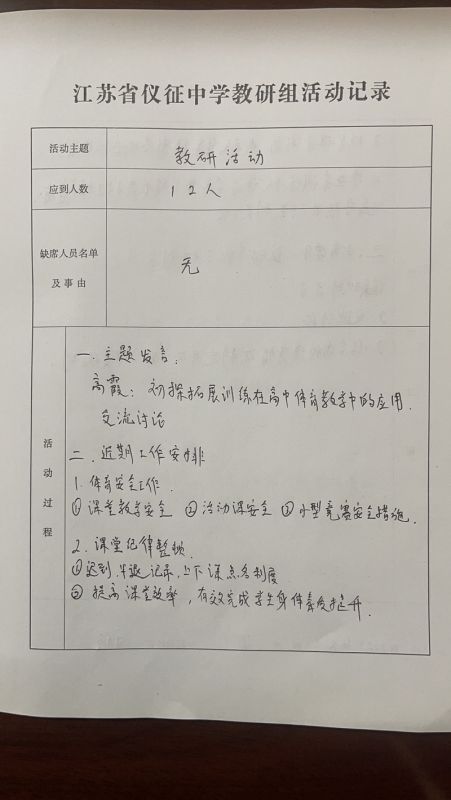 江苏省仪征中学教研组活动记录
活动主题
教研活动
应到人数
12人
缺席人员名单
及事由
无
活动过程
一.主题发言:
高霞:初探拓展训练在高中体育教学中的应用.
交流讨论
二.近期工作安排
1.体育安全工作.
①课堂教学安全 ②活动课安全 ③小型竞赛安全措施.
2.课堂纪律整顿.
①迟到.早退记录,上下课点名制度.
② 提高课堂效率,有效完成学生身体素质提升.